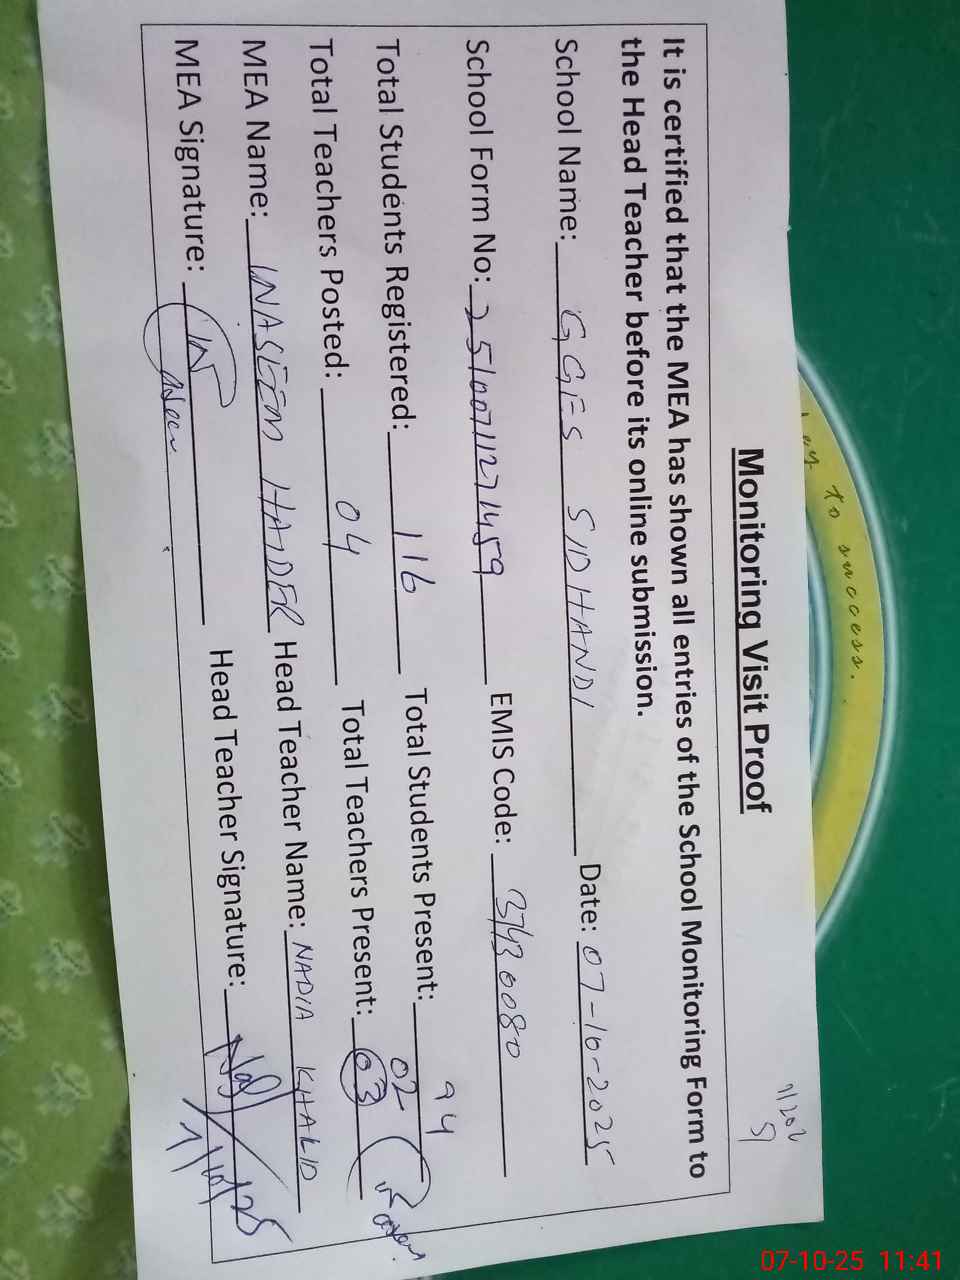 to success.
Monitoring Visit Proof
It is certified that the MEA has shown all entries of the School Monitoring Form to
the Head Teacher before its online submission.
School Name: GGES SIDHANDI Date: 07-10-2025
School Form No: 25100711271459 EMIS Code: 37430080
Total Students Registered: 116 Total Students Present: 94
Total Teachers Posted: 04 Total Teachers Present: 02 03
MEA Name: NASEEM HAIDER Head Teacher Name: NADIA KHALID
MEA Signature: Head Teacher Signature:
7/10/25
07-10-25 11:41